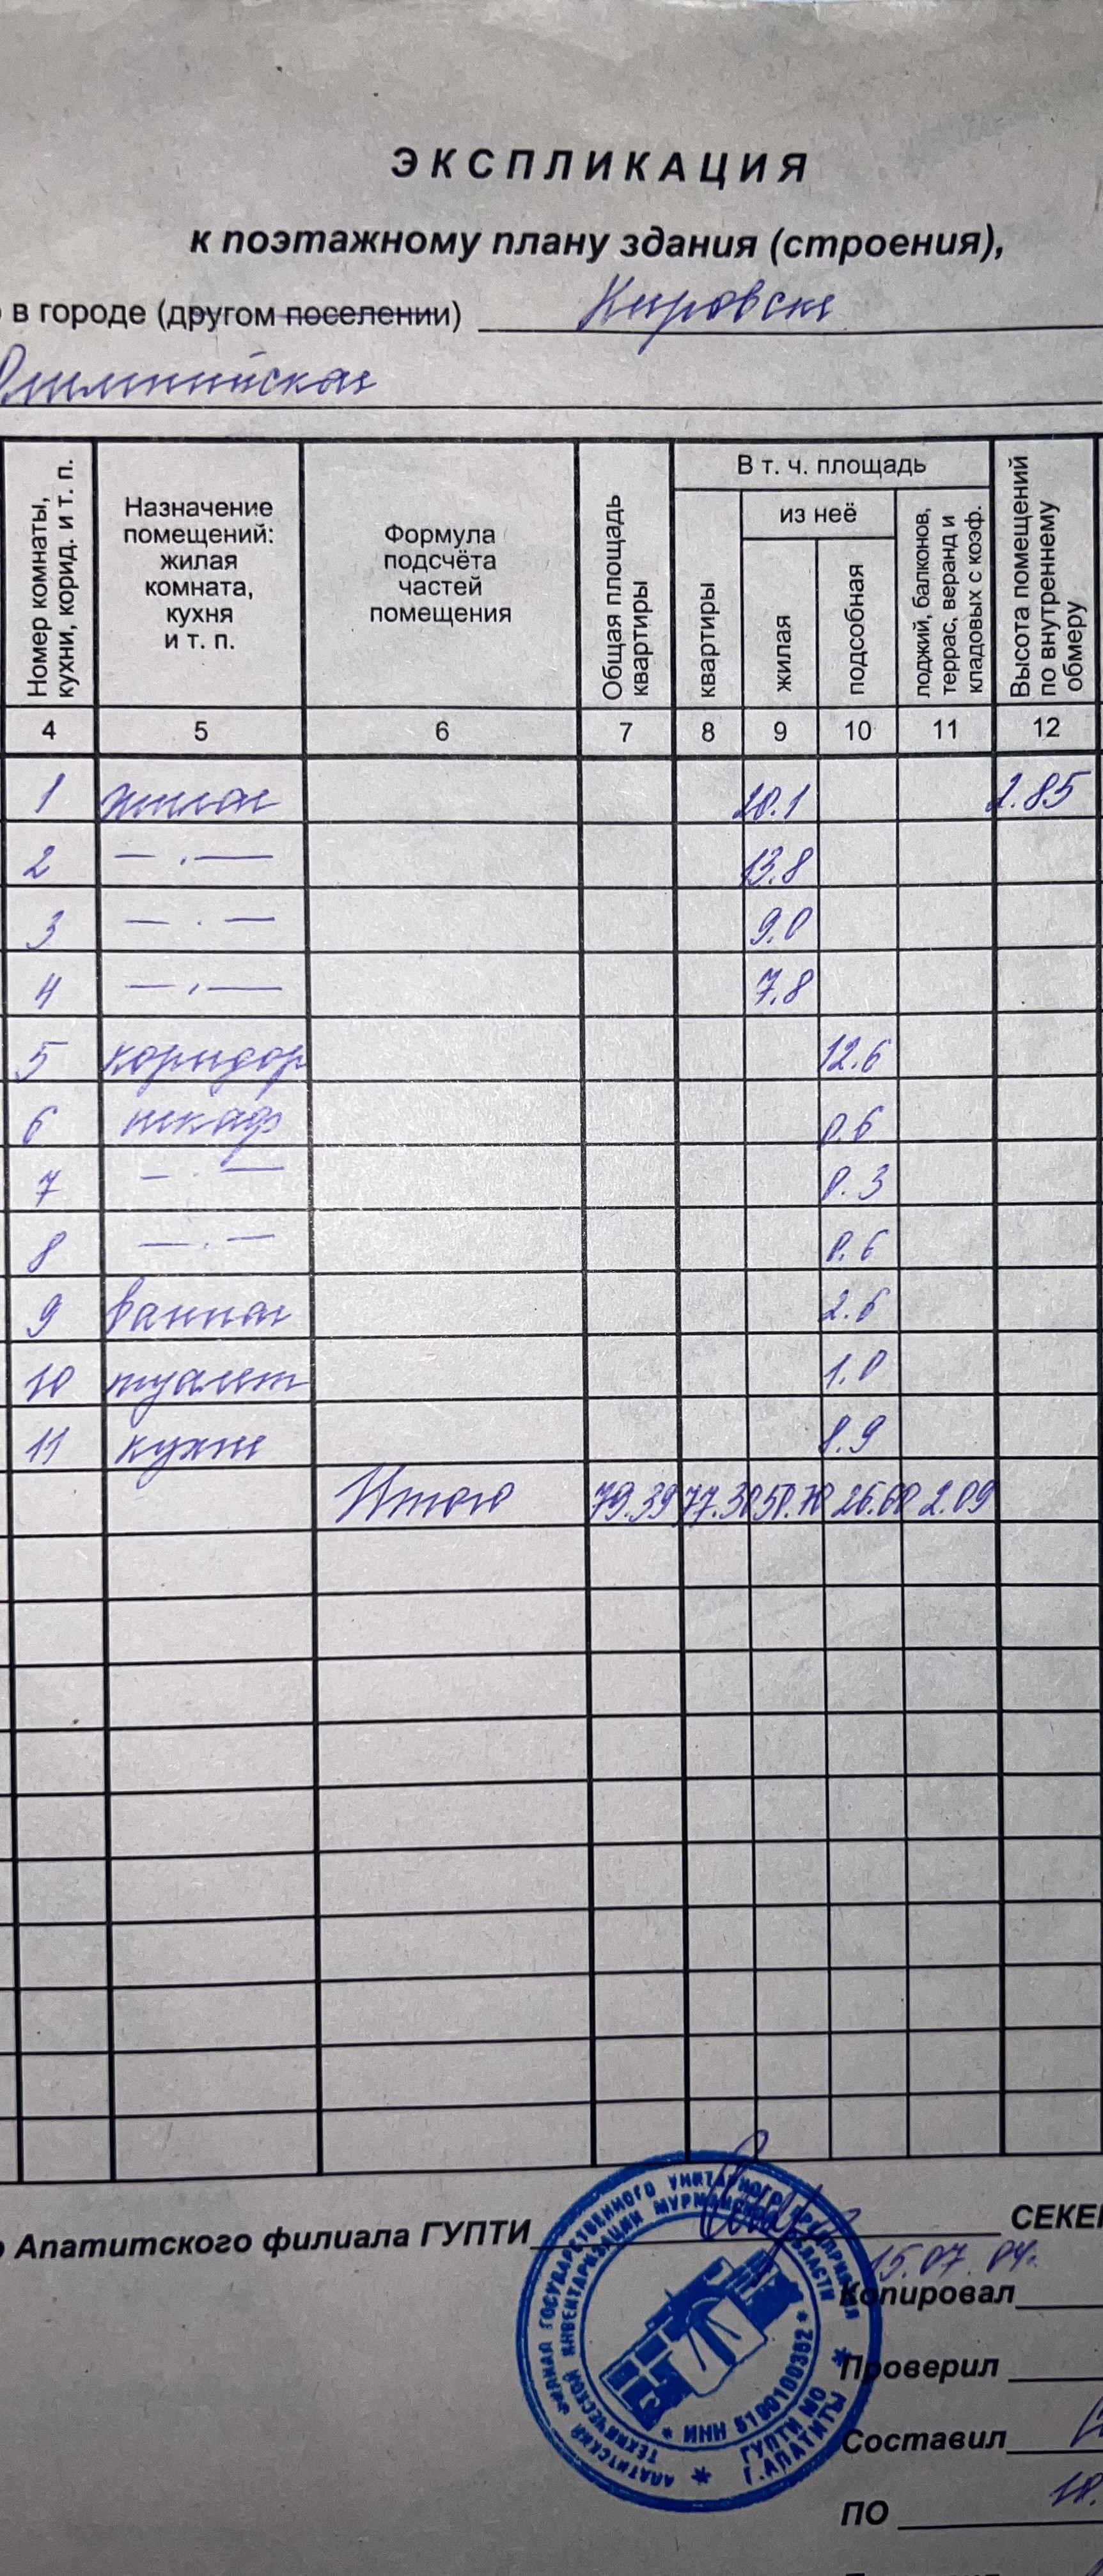 ЭКСПЛИКАЦИЯ
к поэтажному плану здания (строения),
в городе (другом поселении) Кировске
Олимпийская
Номер комнаты, кухни, корид. и т. п.
Назначение помещений: жилая комната, кухня и т. п.
Формула подсчёта частей помещения
Общая площадь квартиры
В т. ч. площадь
квартиры
из неё
жилая
подсобная
лоджий, балконов, террас, веранд и кладовых с коэф.
Высота помещений по внутреннему обмеру
4 5 6 7 8 9 10 11 12
1 жилая 20.1 2.85
2 — . — 13.8
3 — . — 9.0
4 — . — 7.8
5 коридор 12.6
6 шкаф 0.6
7 — . — 0.3
8 — . — 0.6
9 ванная 2.6
10 туалет 1.0
11 кухня 8.9
Итого 79.39 77.30 50.70 26.60 2.09
Апатитского филиала ГУПТИ
15.07.04г.
Копировал
Проверил
Составил
ПО
АПАТИТСКИЙ ФИЛИАЛ ГОСУДАРСТВЕННОГО УНИТАРНОГО ПРЕДПРИЯТИЯ
ТЕХНИЧЕСКОЙ ИНВЕНТАРИЗАЦИИ МУРМАНСКОЙ ОБЛАСТИ
ГУПТИ МО
Г.АПАТИТЫ